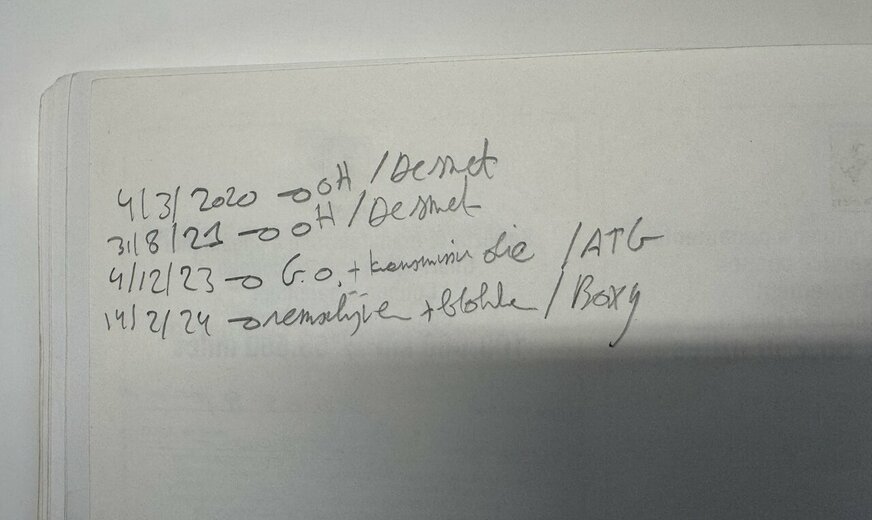 4/3/2020 → OH / Desmet
31/8/21 → OH / Desmet
4/12/23 → G.O. + transmissie olie / ATG
14/2/24 → remschijven + blokken / Boxy